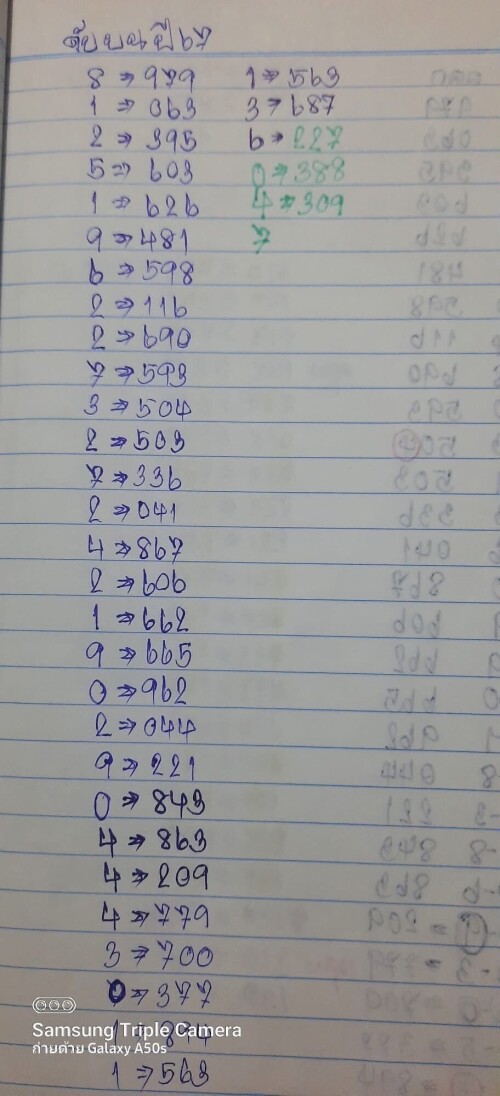 ดับบนปี67
8 => 979
1 => 063
2 => 395
5 => 603
1 => 626
9 => 481
6 => 598
2 => 116
2 => 690
7 => 593
3 => 504
2 => 503
7 => 336
2 => 041
4 => 867
2 => 606
1 => 662
9 => 665
0 => 962
2 => 044
9 => 221
0 => 843
4 => 863
4 => 209
4 => 779
3 => 700
0 => 377
1 =>
1 => 563
1 => 563
3 => 687
6 => 227
0 => 388
4 => 309
7
Samsung Triple Camera
ถ่ายด้วย Galaxy A50s